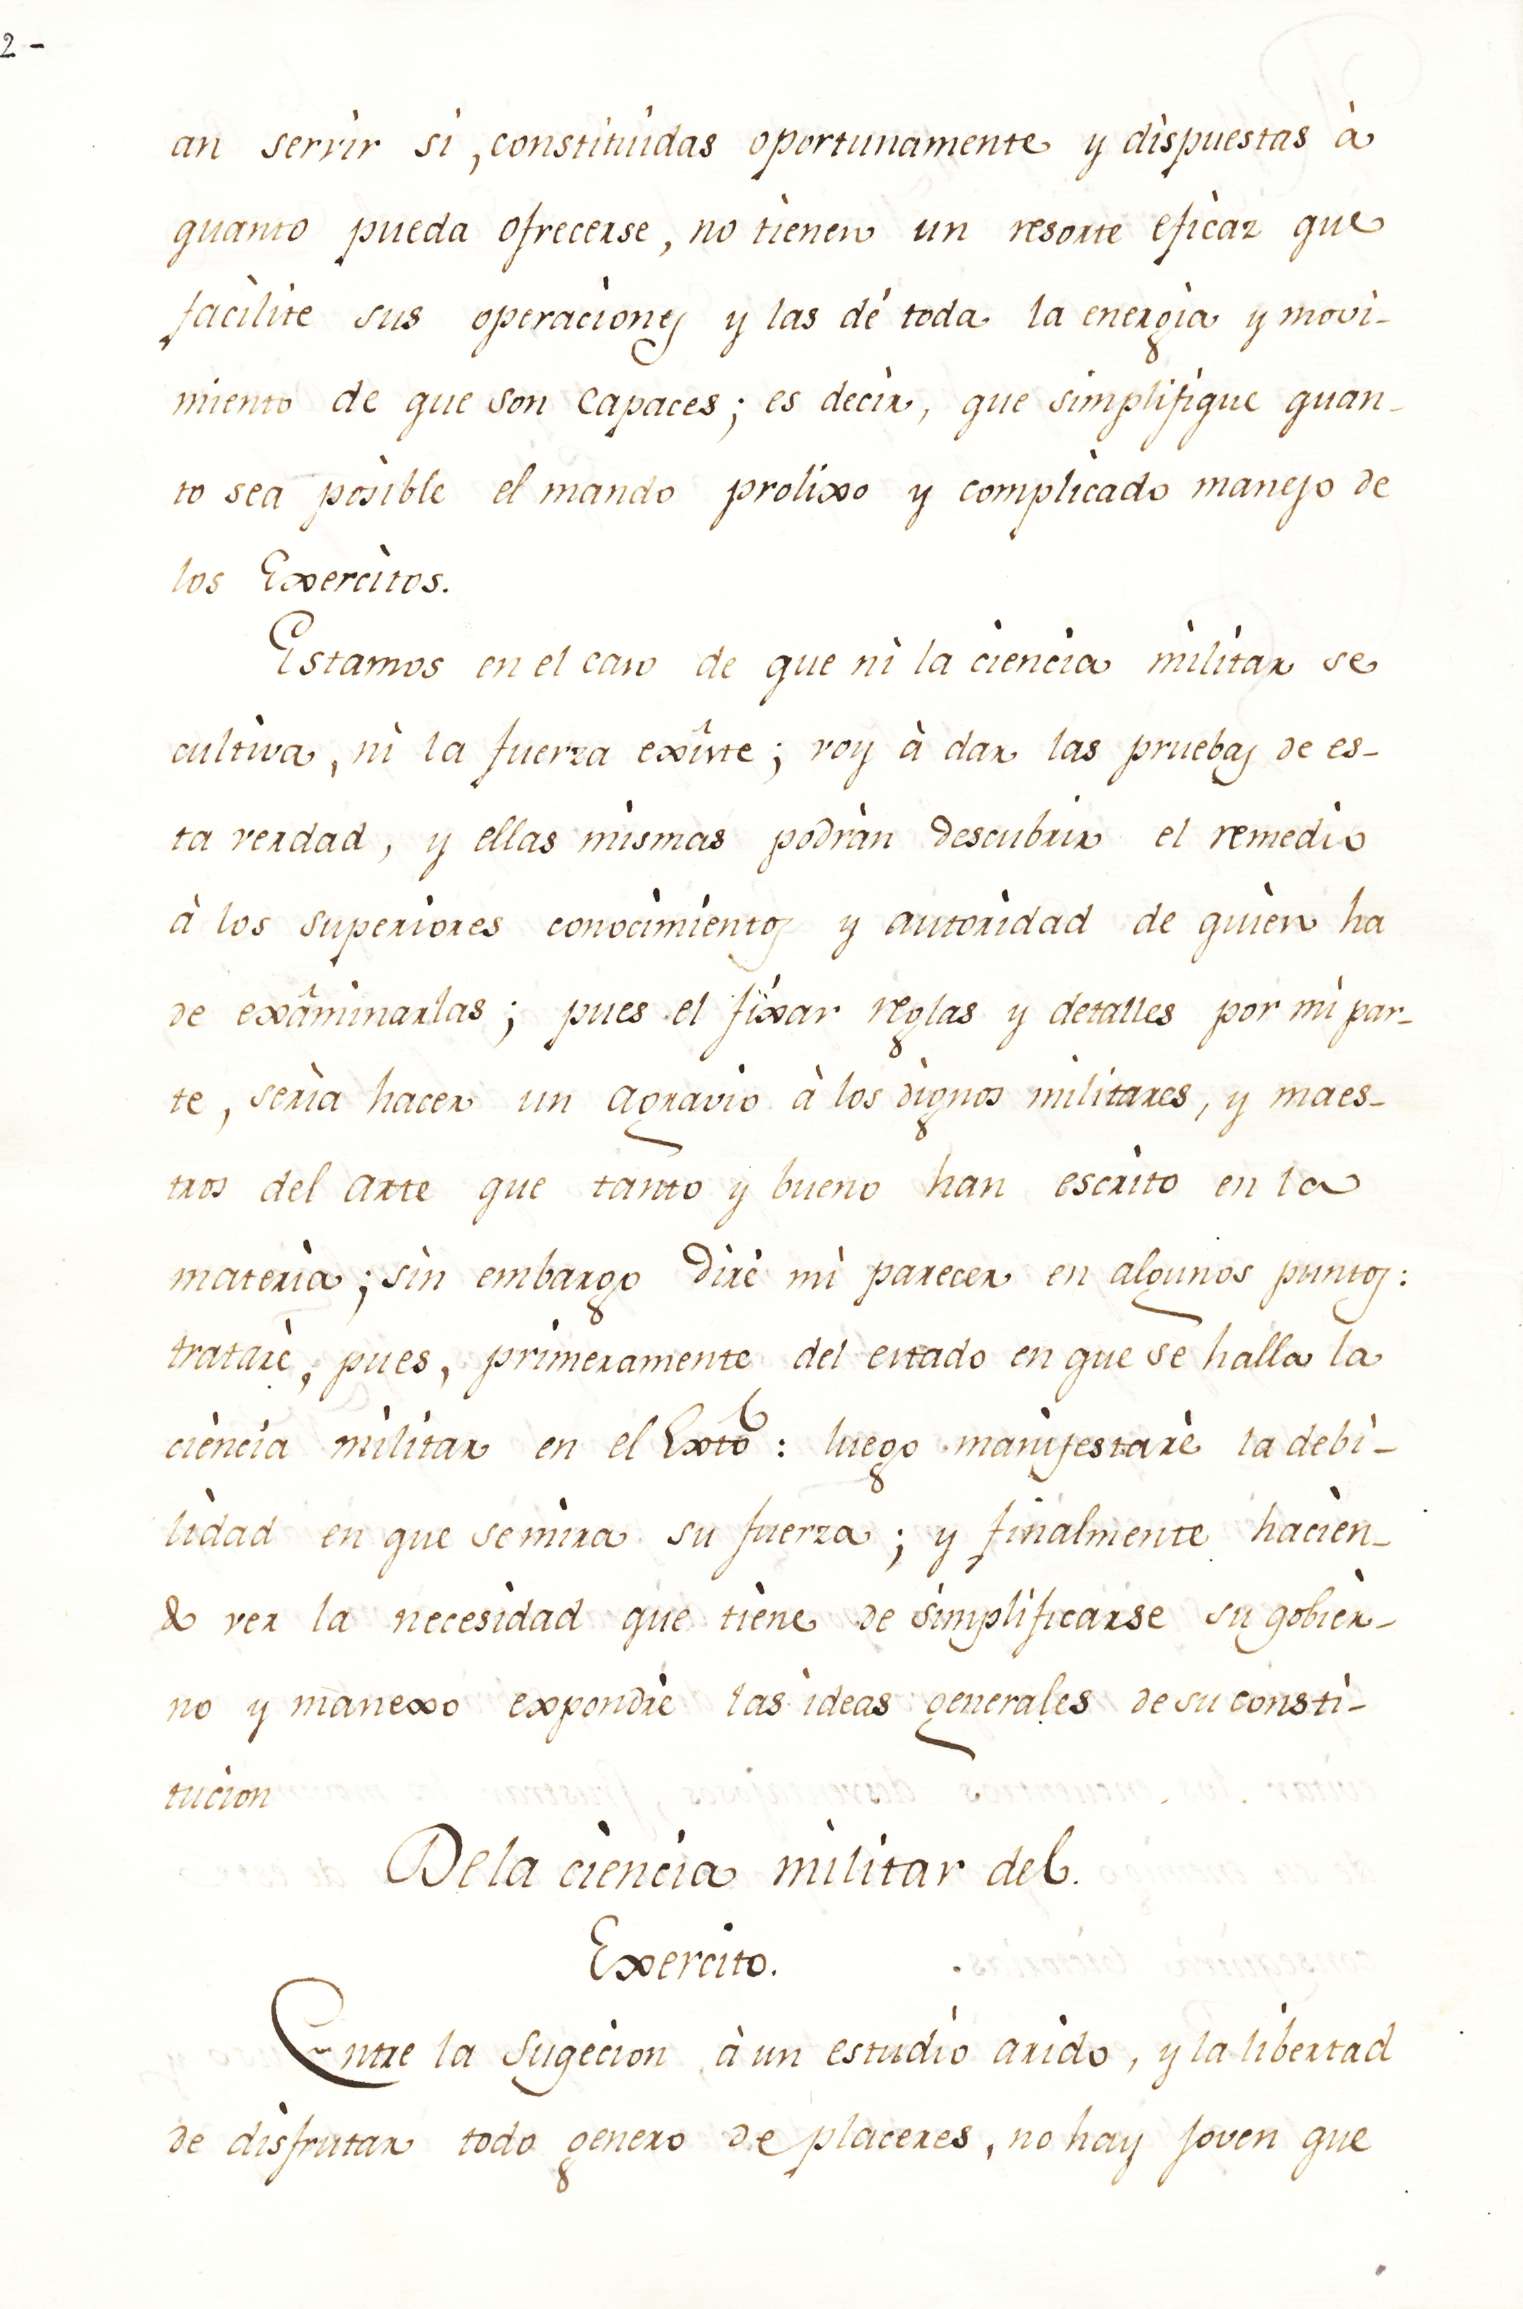 2-
an servir si, constituidas oportunamente y dispuestas à
quanto pueda ofrecerse, no tienen un resorte eficaz que
facilite sus operaciones y las dé toda la energia y movi-
miento de que son capaces; es decir, que simplifique quan-
to sea posible el mando prolixo y complicado manejo de
los Exercitos.
Estamos en el caso de que ni la ciencia militar se
cultiva, ni la fuerza exîste; voy à dar las pruebas de es-
ta verdad, y ellas mismas podràn descubrir el remedio
à los superiores conocimientos y autoridad de quien ha
de exâminarlas; pues el fixar reglas y detalles por mi par-
te, seria hacer un agravio à los dignos militares, y maes-
tros del arte que tanto y bueno han escrito en la
materia; sin embargo diré mi parecer en algunos puntos:
trataré, pues, primeramente del estado en que se halla la
ciencia militar en el Exto: luego manifestarè la debi-
lidad en que se mira su fuerza; y finalmente hacien-
do ver la necesidad que tiene de simplificarse su gobier-
no y manexo expondré las ideas generales de su consti-
tucion
De la ciencia militar del
Exercito.
Entre la sugecion à un estudio arido, y la libertad
de disfrutar todo genero de placeres, no hay joven que